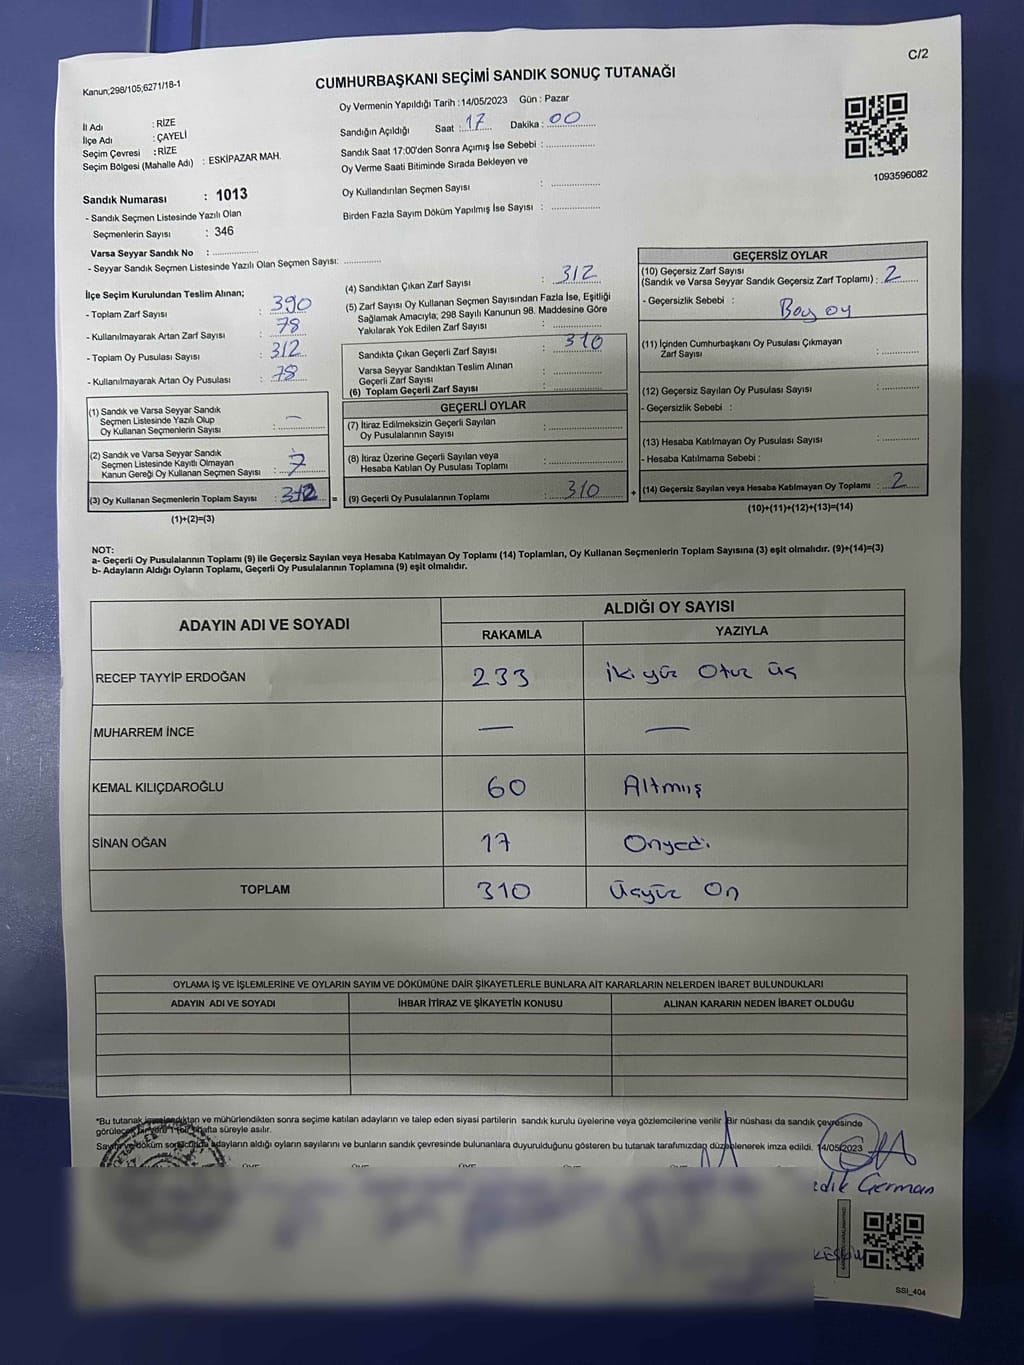 C/2
Kanun;298/105;6271/18-1
CUMHURBAŞKANI SEÇİMİ SANDIK SONUÇ TUTANAĞI
Oy Vermenin Yapıldığı Tarih : 14/05/2023 Gün : Pazar
İl Adı : RİZE
İlçe Adı : ÇAYELİ
Seçim Çevresi : RİZE
Seçim Bölgesi (Mahalle Adı) : ESKİPAZAR MAH.
Sandığın Açıldığı Saat : 17 Dakika : 00
Sandık Saat 17:00'den Sonra Açımış İse Sebebi :
Oy Verme Saati Bitiminde Sırada Bekleyen ve
Oy Kullandırılan Seçmen Sayısı :
Birden Fazla Sayım Döküm Yapılmış İse Sayısı :
1093596082
Sandık Numarası : 1013
- Sandık Seçmen Listesinde Yazılı Olan
Seçmenlerin Sayısı : 346
Varsa Seyyar Sandık No :
- Seyyar Sandık Seçmen Listesinde Yazılı Olan Seçmen Sayısı:
İlçe Seçim Kurulundan Teslim Alınan;
- Toplam Zarf Sayısı : 390
- Kullanılmayarak Artan Zarf Sayısı : 78
- Toplam Oy Pusulası Sayısı : 312
- Kullanılmayarak Artan Oy Pusulası : 78
(1) Sandık ve Varsa Seyyar Sandık
Seçmen Listesinde Yazılı Olup
Oy Kullanan Seçmenlerin Sayısı : —
(2) Sandık ve Varsa Seyyar Sandık
Seçmen Listesinde Kayıtlı Olmayan
Kanun Gereği Oy Kullanan Seçmen Sayısı : 7
(3) Oy Kullanan Seçmenlerin Toplam Sayısı : 312 =
(1)+(2)=(3)
(4) Sandıktan Çıkan Zarf Sayısı : 312
(5) Zarf Sayısı Oy Kullanan Seçmen Sayısından Fazla İse, Eşitliği
Sağlamak Amacıyla; 298 Sayılı Kanunun 98. Maddesine Göre
Yakılarak Yok Edilen Zarf Sayısı :
Sandıkta Çıkan Geçerli Zarf Sayısı : 310
Varsa Seyyar Sandıktan Teslim Alınan
Geçerli Zarf Sayısı :
(6) Toplam Geçerli Zarf Sayısı :
GEÇERLİ OYLAR
(7) İtiraz Edilmeksizin Geçerli Sayılan
Oy Pusulalarının Sayısı :
(8) İtiraz Üzerine Geçerli Sayılan veya
Hesaba Katılan Oy Pusulası Toplamı :
(9) Geçerli Oy Pusulalarının Toplamı : 310 +
GEÇERSİZ OYLAR
(10) Geçersiz Zarf Sayısı
(Sandık ve Varsa Seyyar Sandık Geçersiz Zarf Toplamı) : 2
- Geçersizlik Sebebi : Boş oy
(11) İçinden Cumhurbaşkanı Oy Pusulası Çıkmayan
Zarf Sayısı :
(12) Geçersiz Sayılan Oy Pusulası Sayısı :
- Geçersizlik Sebebi :
(13) Hesaba Katılmayan Oy Pusulası Sayısı :
- Hesaba Katılmama Sebebi :
(14) Geçersiz Sayılan veya Hesaba Katılmayan Oy Toplamı : 2
(10)+(11)+(12)+(13)=(14)
NOT:
a- Geçerli Oy Pusulalarının Toplamı (9) ile Geçersiz Sayılan veya Hesaba Katılmayan Oy Toplamı (14) Toplamları, Oy Kullanan Seçmenlerin Toplam Sayısına (3) eşit olmalıdır. (9)+(14)=(3)
b- Adayların Aldığı Oyların Toplamı, Geçerli Oy Pusulalarının Toplamına (9) eşit olmalıdır.
ADAYIN ADI VE SOYADI ALDIĞI OY SAYISI
RAKAMLA YAZIYLA
RECEP TAYYİP ERDOĞAN 233 İki yüz Otuz üç
MUHARREM İNCE — —
KEMAL KILIÇDAROĞLU 60 Altmış
SİNAN OĞAN 17 Onyedi
TOPLAM 310 Üçyüz On
OYLAMA İŞ VE İŞLEMLERİNE VE OYLARIN SAYIM VE DÖKÜMÜNE DAİR ŞİKAYETLERLE BUNLARA AİT KARARLARIN NELERDEN İBARET BULUNDUKLARI
ADAYIN ADI VE SOYADI İHBAR İTİRAZ VE ŞİKAYETİN KONUSU ALINAN KARARIN NEDEN İBARET OLDUĞU
*Bu tutanak imzalandıktan ve mühürlendikten sonra seçime katılan adayların ve talep eden siyasi partilerin sandık kurulu üyelerine veya gözlemcilerine verilir. Bir nüshası da sandık çevresinde
hafta süreyle asılır.
adayların aldığı oyların sayılarını ve bunların sandık çevresinde bulunanlara duyurulduğunu gösteren bu tutanak tarafımızdan düzenlenerek imza edildi. 14/05/2023
German
SSI_404